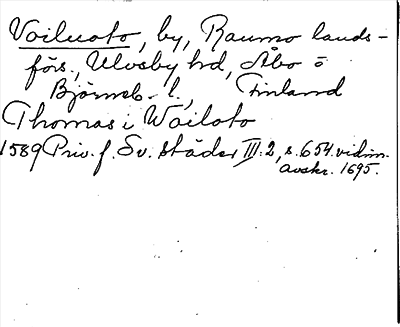 Voiluoto, by, Raumo lands-
förs., Ulvsby hd, Åbo o
Björneb. l., Finland
Thomas i Woiloto
1589 Priv. f. Sv. städer III:2, s. 654. vidim.
avskr. 1695.